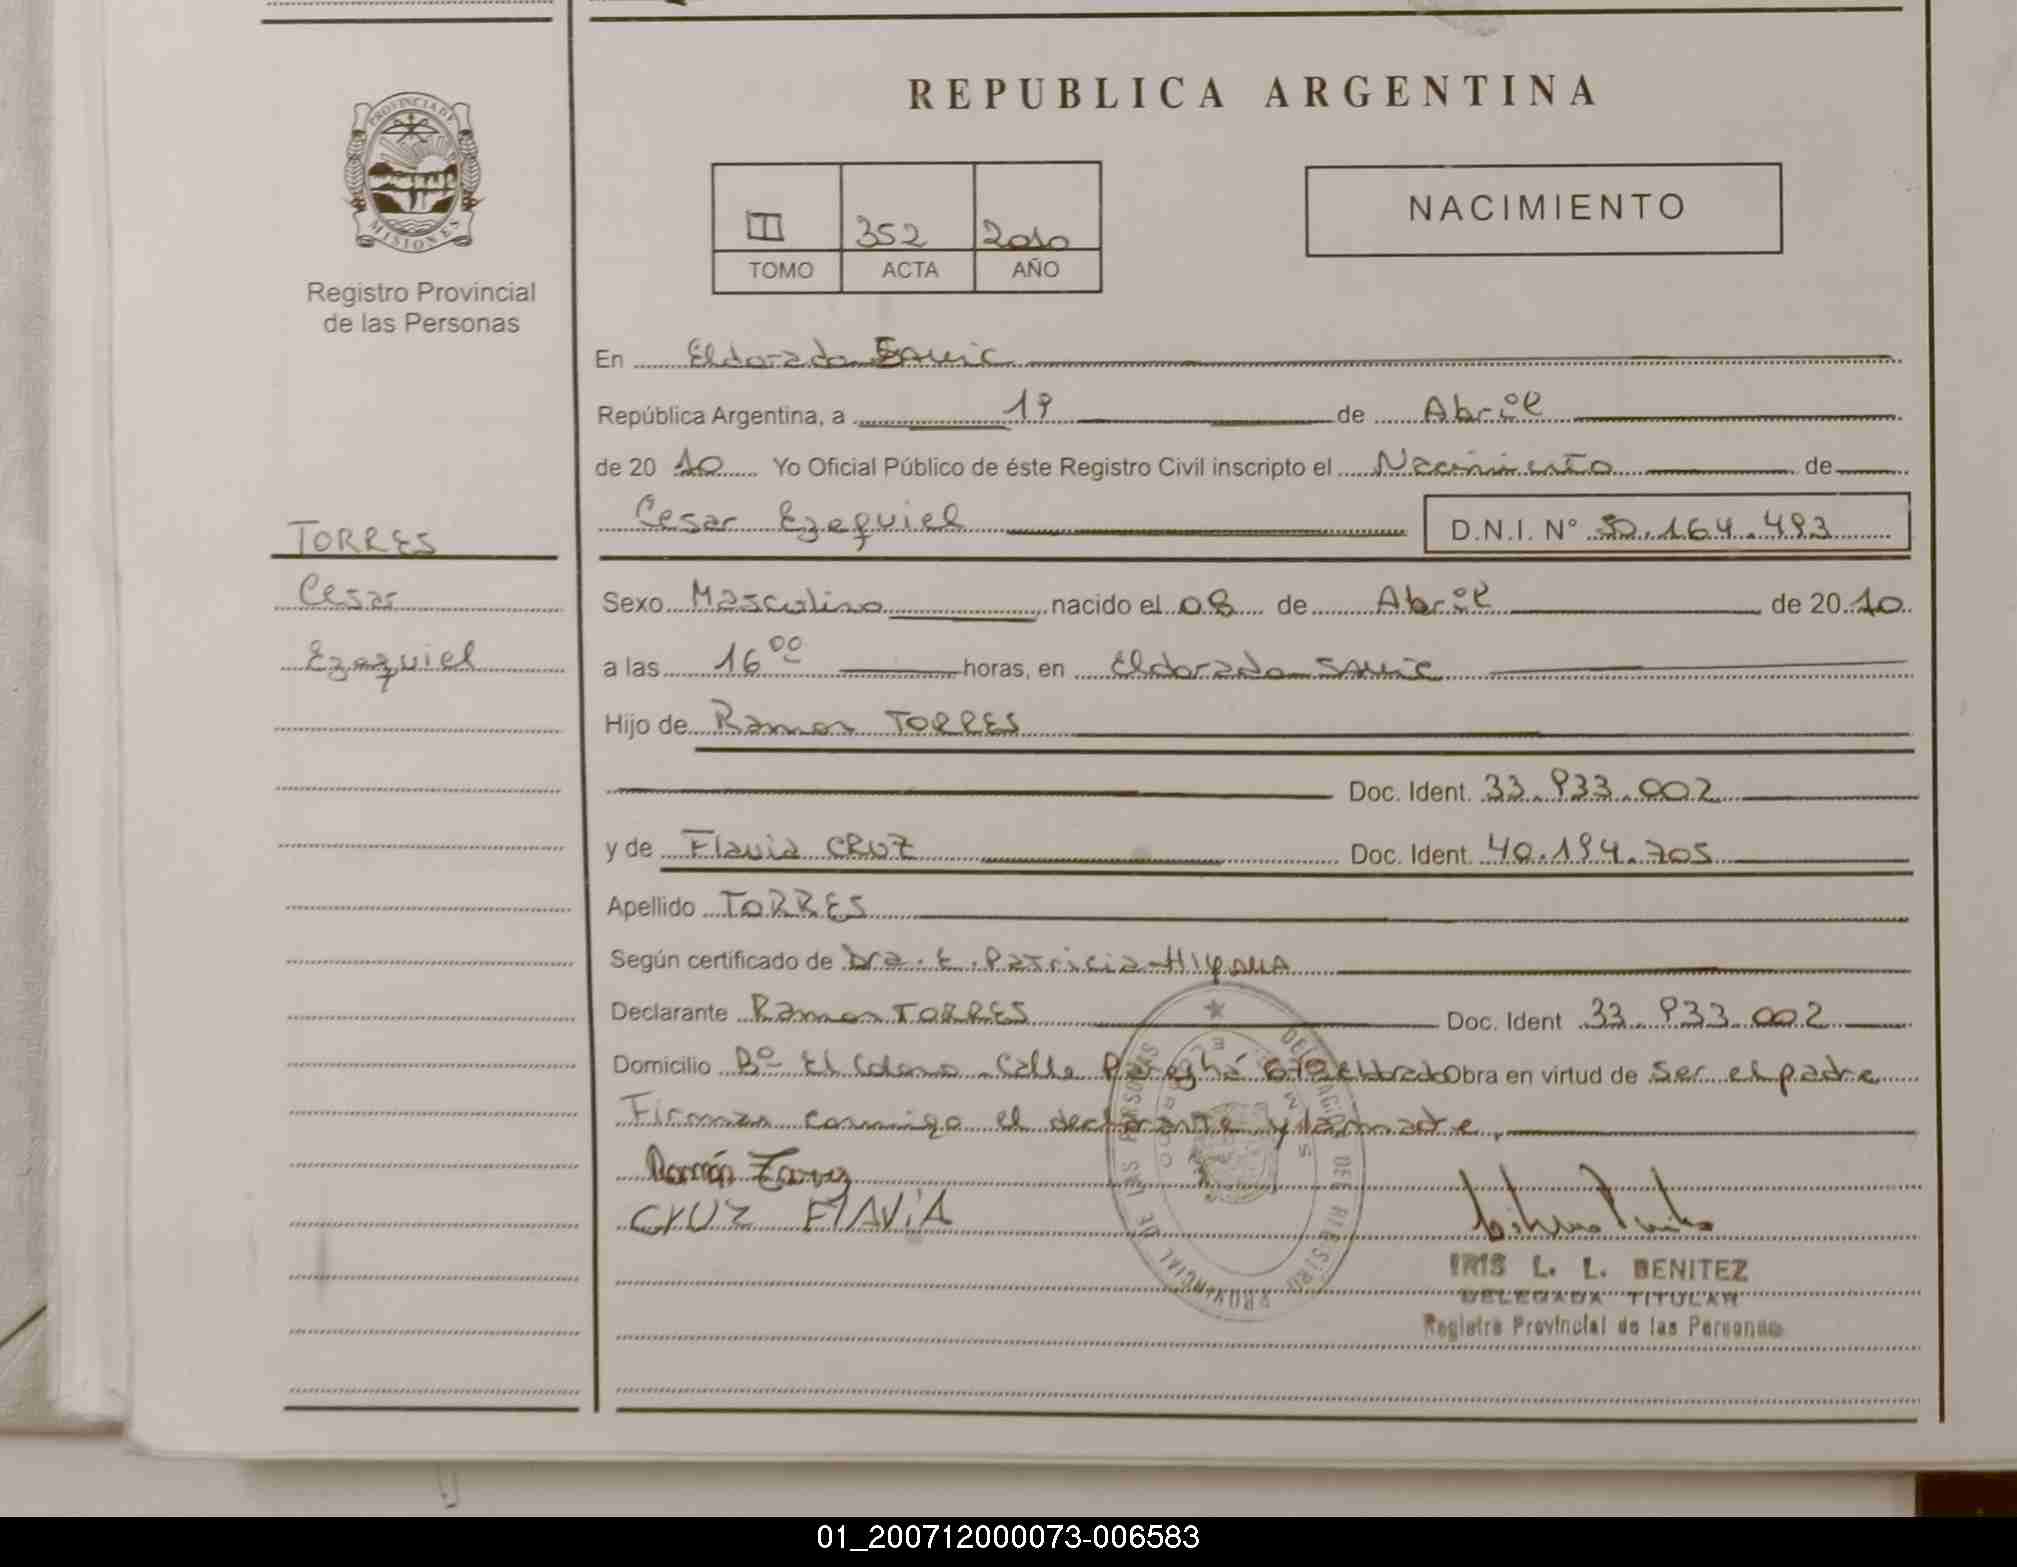 REPUBLICA ARGENTINA
PROVINCIA DE MISIONES
Registro Provincial
de las Personas
III 352 2010
TOMO ACTA AÑO
NACIMIENTO
TORRES
Cesar
Ezequiel
En Eldorado Samic
República Argentina, a 19 de Abril
de 20 10 Yo Oficial Público de éste Registro Civil inscripto el Nacimiento de
Cesar Ezequiel D.N.I. N° 50.164.493
Sexo Masculino nacido el 08 de Abril de 20 10
a las 16 00 horas, en Eldorado Samic
Hijo de Ramon TORRES
Doc. Ident. 33.933.002
y de Flavia CRUZ Doc. Ident. 40.194.705
Apellido TORRES
Según certificado de Dra. E. Patricia
Declarante Ramon TORRES Doc. Ident 33.933.002
Domicilio Bº El Colono Calle Obra en virtud de ser el padre
Firman conmigo el declarante y la madre.
Ramón Torres
CruZ FlAViA
IRIS L. L. BENITEZ
DELEGADA TITULAR
Registro Provincial de las Personas
01_200712000073-006583